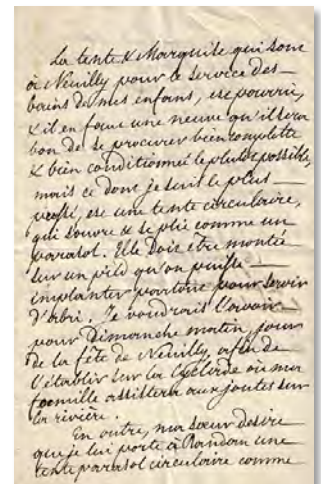 La tente & Marquise qui sont
à Neuilly pour le service des
bains de mes enfans, est pourrie,
& il en faut une neuve qu'il sera
bon de se procurer bien complette
& bien conditionnée le plutôt possible,
mais ce dont je suis le plus
pressé, est une tente circulaire,
qui s'ouvre & se plie comme un
parasol. Elle doit être montée
sur un pied qu'on puisse
implanter partout pour servir
d'abri. Je voudrais l'avoir
pour Dimanche matin, jour
de la fête de Neuilly, afin de
l'établir sur la ou ma
famille assistera aux joutes sur
la rivière.
En outre, ma sœur desire
que je lui porte à Randan une
tente parasol circulaire comme